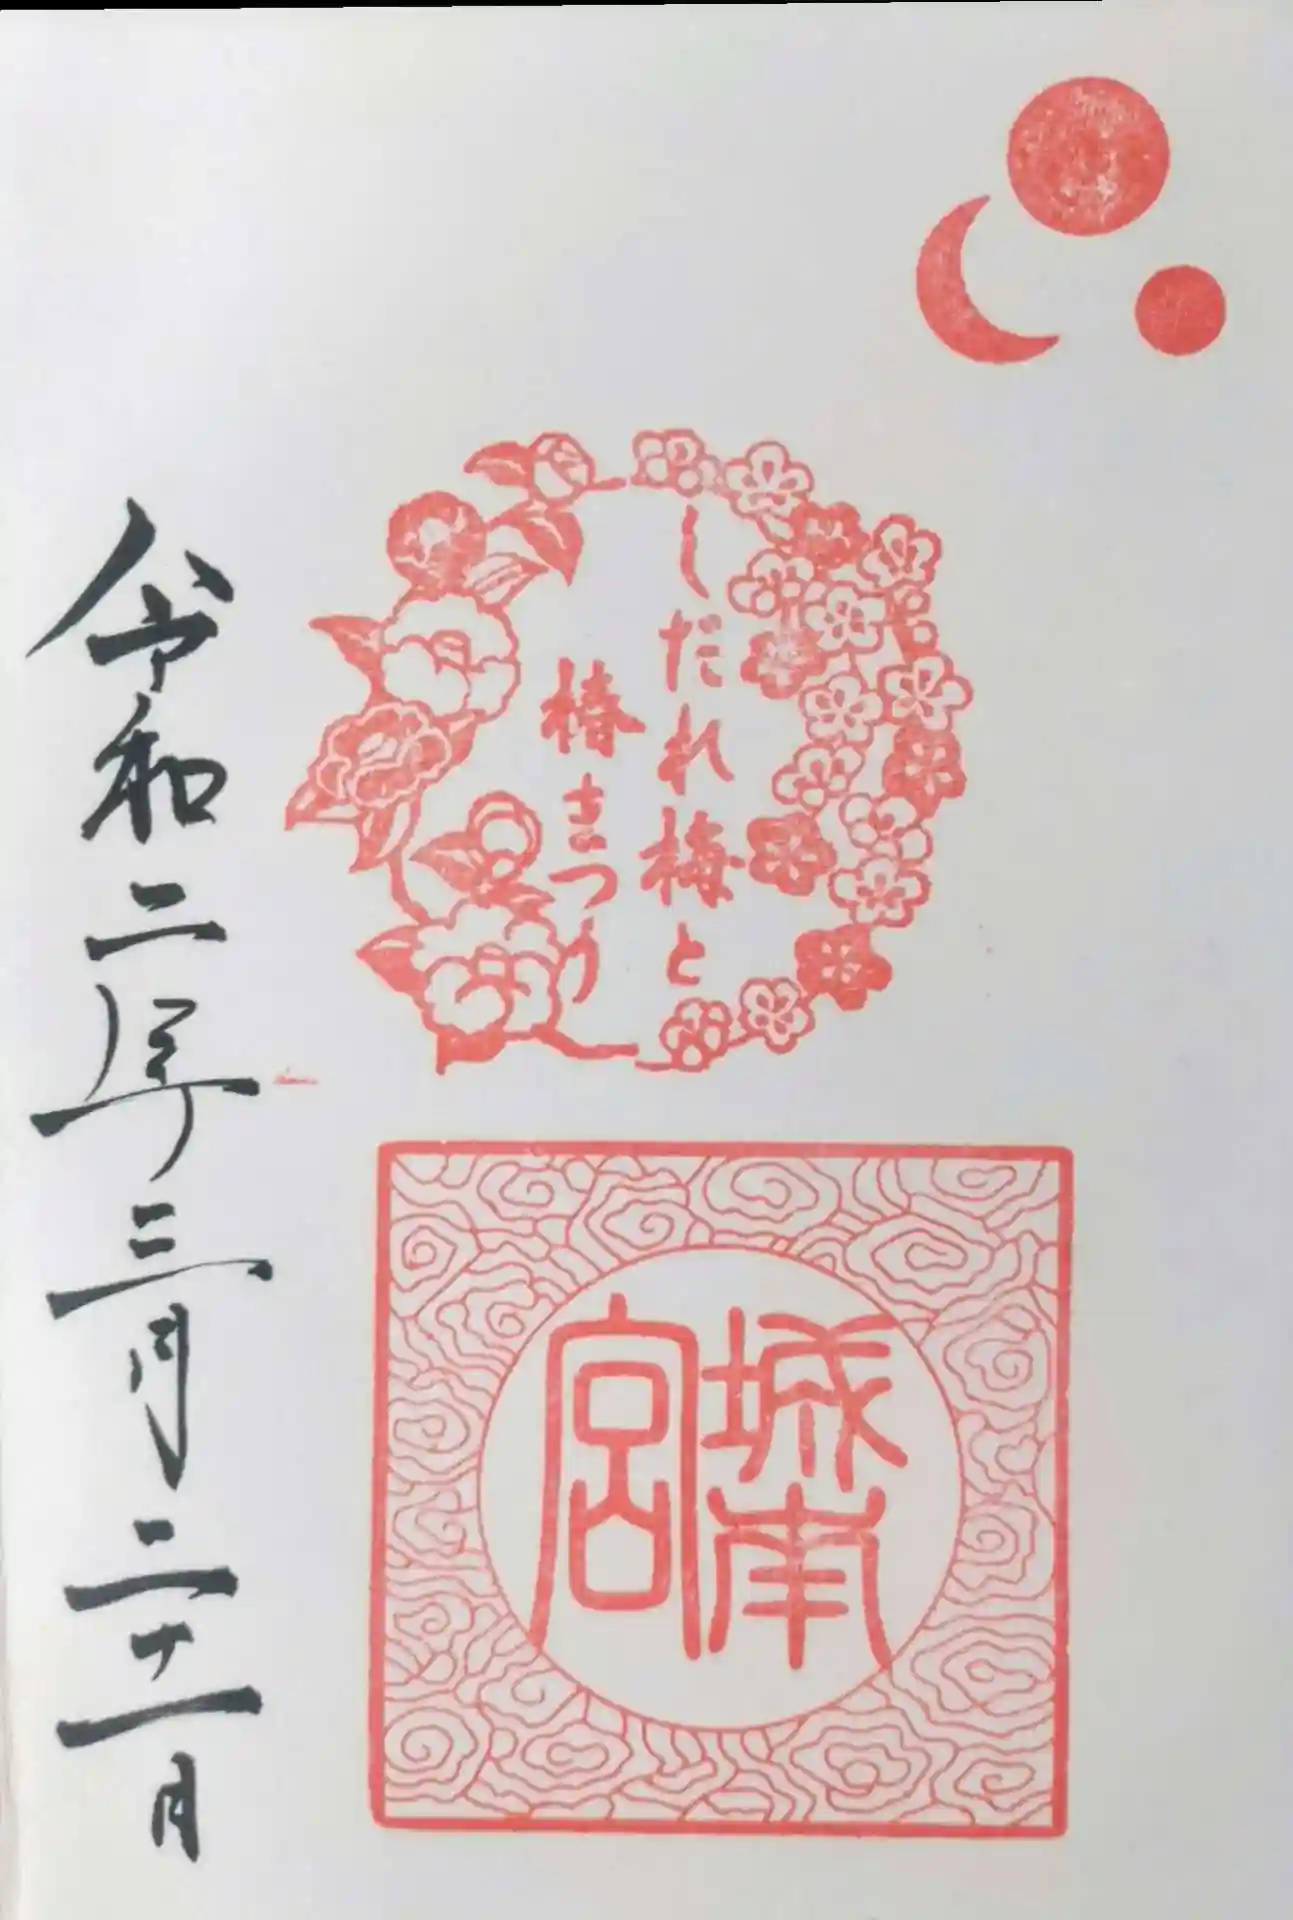 しだれ梅と
椿まつり
城南
宮
令和二年三月二十一日